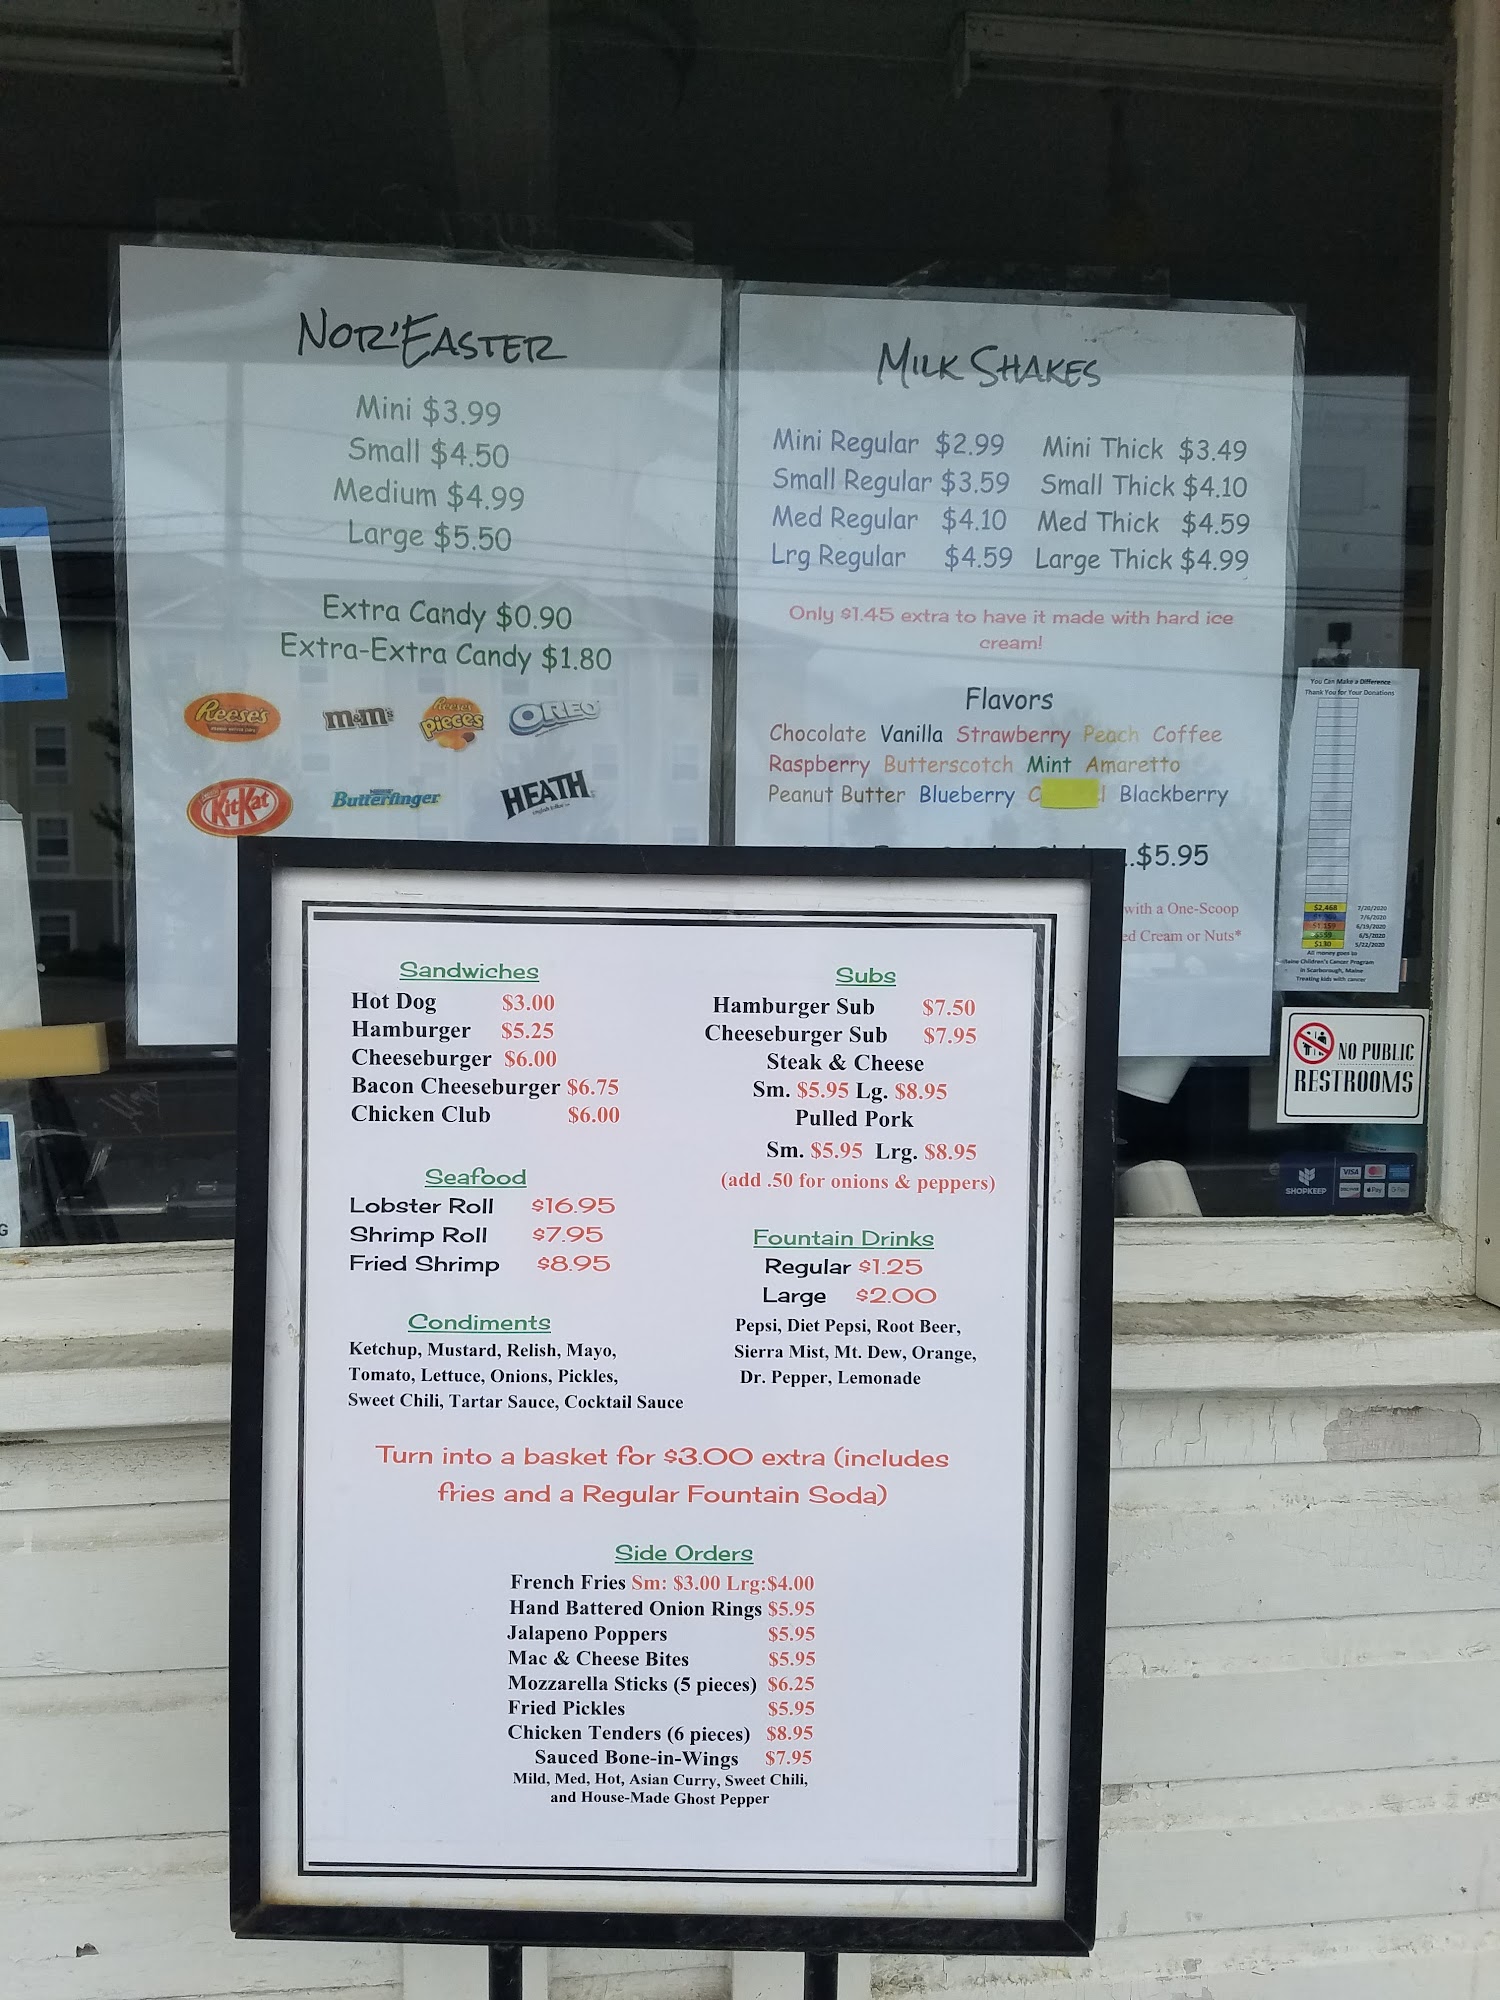 Nor'Easter
Mini $3.99
Small $4.50
Medium $4.99
Large $5.50
Extra Candy $0.90
Extra-Extra Candy $1.80
Reese's
m&m's
Reese's
Pieces
OREO
KitKat
Butterfinger
HEATH
Milk Shakes
Mini Regular $2.99 Mini Thick $3.49
Small Regular $3.59 Small Thick $4.10
Med Regular $4.10 Med Thick $4.59
Lrg Regular $4.59 Large Thick $4.99
Only $1.45 extra to have it made with hard ice
cream!
Flavors
Chocolate Vanilla Strawberry Peach Coffee
Raspberry Butterscotch Mint Amaretto
Peanut Butter Blueberry Blackberry
$5.95
with a One-Scoop
Cream or Nuts*
You Can Make a Difference
Thank You for Your Donations
$2,468 7/20/2020
7/6/2020
$1,159 6/19/2020
$559 6/5/2020
$130 5/22/2020
All money goes to
Maine Children's Cancer Program
in Scarborough, Maine
Treating kids with cancer
NO PUBLIC
RESTROOMS
SHOPKEEP
VISA
Pay
Sandwiches
Hot Dog $3.00
Hamburger $5.25
Cheeseburger $6.00
Bacon Cheeseburger $6.75
Chicken Club $6.00
Seafood
Lobster Roll $16.95
Shrimp Roll $7.95
Fried Shrimp $8.95
Condiments
Ketchup, Mustard, Relish, Mayo,
Tomato, Lettuce, Onions, Pickles,
Sweet Chili, Tartar Sauce, Cocktail Sauce
Subs
Hamburger Sub $7.50
Cheeseburger Sub $7.95
Steak & Cheese
Sm. $5.95 Lg. $8.95
Pulled Pork
Sm. $5.95 Lrg. $8.95
(add .50 for onions & peppers)
Fountain Drinks
Regular $1.25
Large $2.00
Pepsi, Diet Pepsi, Root Beer,
Sierra Mist, Mt. Dew, Orange,
Dr. Pepper, Lemonade
Turn into a basket for $3.00 extra (includes
fries and a Regular Fountain Soda)
Side Orders
French Fries Sm: $3.00 Lrg:$4.00
Hand Battered Onion Rings $5.95
Jalapeno Poppers $5.95
Mac & Cheese Bites $5.95
Mozzarella Sticks (5 pieces) $6.25
Fried Pickles $5.95
Chicken Tenders (6 pieces) $8.95
Sauced Bone-in-Wings $7.95
Mild, Med, Hot, Asian Curry, Sweet Chili,
and House-Made Ghost Pepper